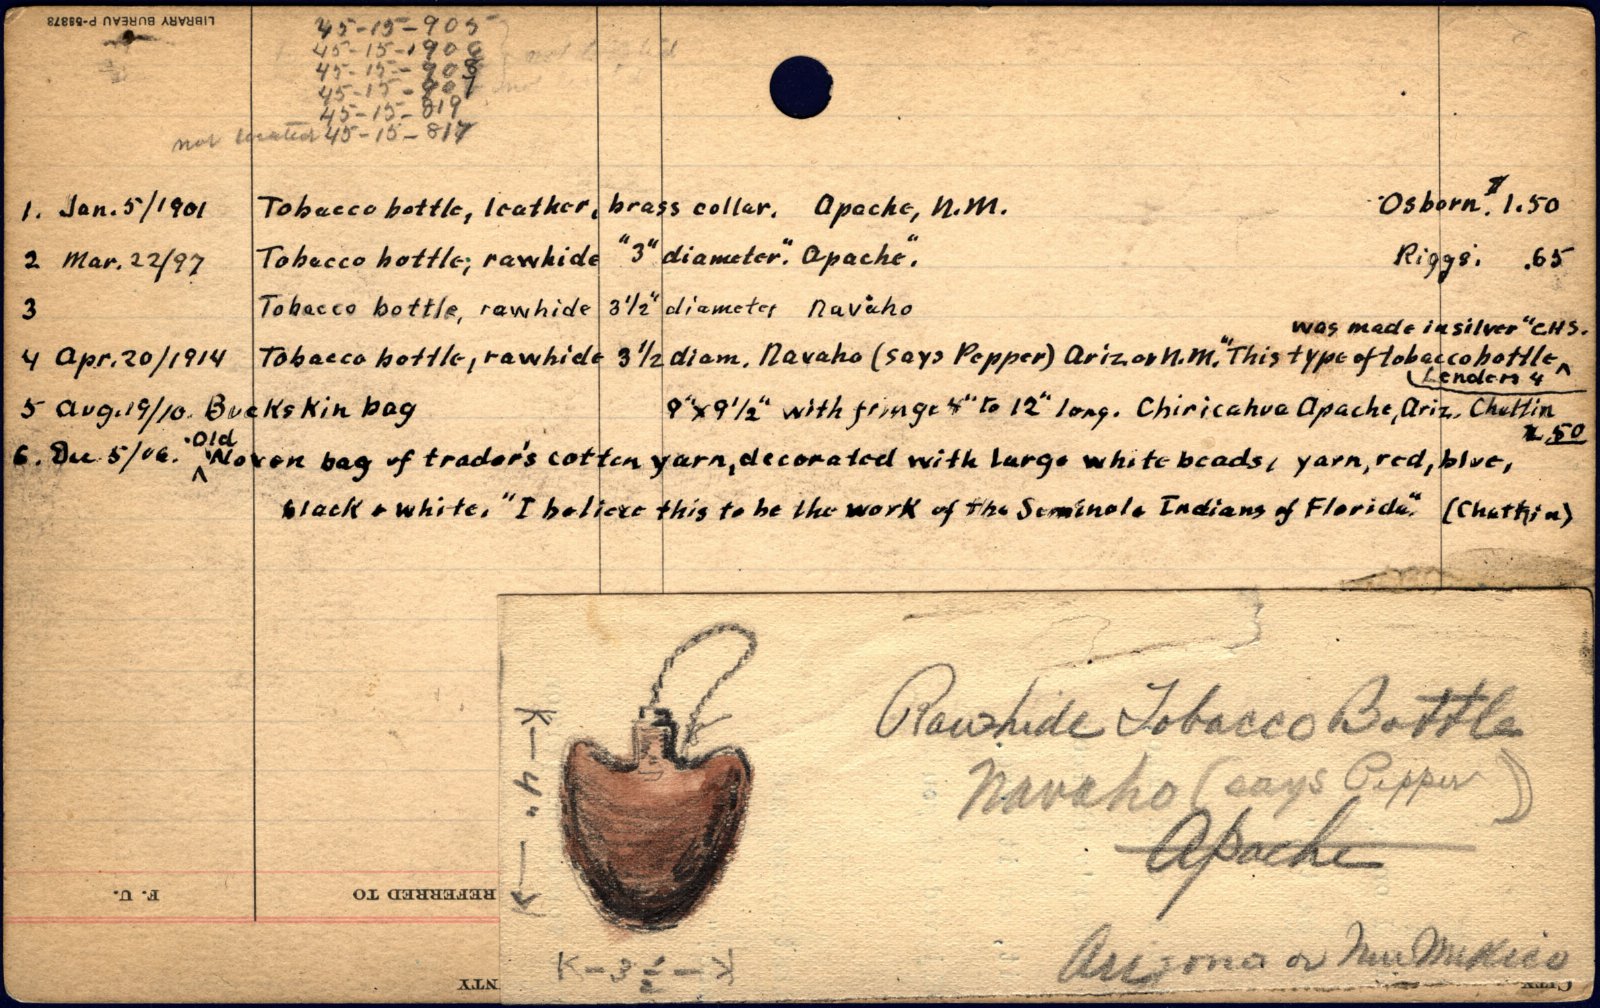 LIBRARY BUREAU P-53373
45-15-905
45-15-1906
45-15-908
45-15-907
45-15-819
not located 45-15-817
1. Jan. 5/1901 Tobacco bottle, leather, brass collar. Apache, N.M. Osborn. $1.50
2 Mar. 22/97 Tobacco bottle; rawhide "3" diameter." Apache". Riggs. .65
3 Tobacco bottle, rawhide 3 1/2" diameter Navaho
was made in silver" CHS.
4 Apr. 20/1914 Tobacco bottle, rawhide 3 1/2 diam. Navaho (says Pepper) Ariz or N.M. "This type of tobacco bottle
Lenders 4
5 Aug. 19/10. Buckskin bag 9" x 9 1/2" with fringe 8" to 12" long. Chiricahua Apache, Ariz. Chattin
.50
6. Dec. 5/06. "Old Woven bag of trador's cotten yarn, decorated with large white beads, yarn, red, blue,
black & white. "I believe this to be the work of the Seminole Indians of Florida". (Chattin)
K-4"
Rawhide Tobacco Bottle
Navaho (says Pepper)
Apache
Arizona or New Mexico
K-3 1/2
F. U.
REFERRED TO
NTY
CITY